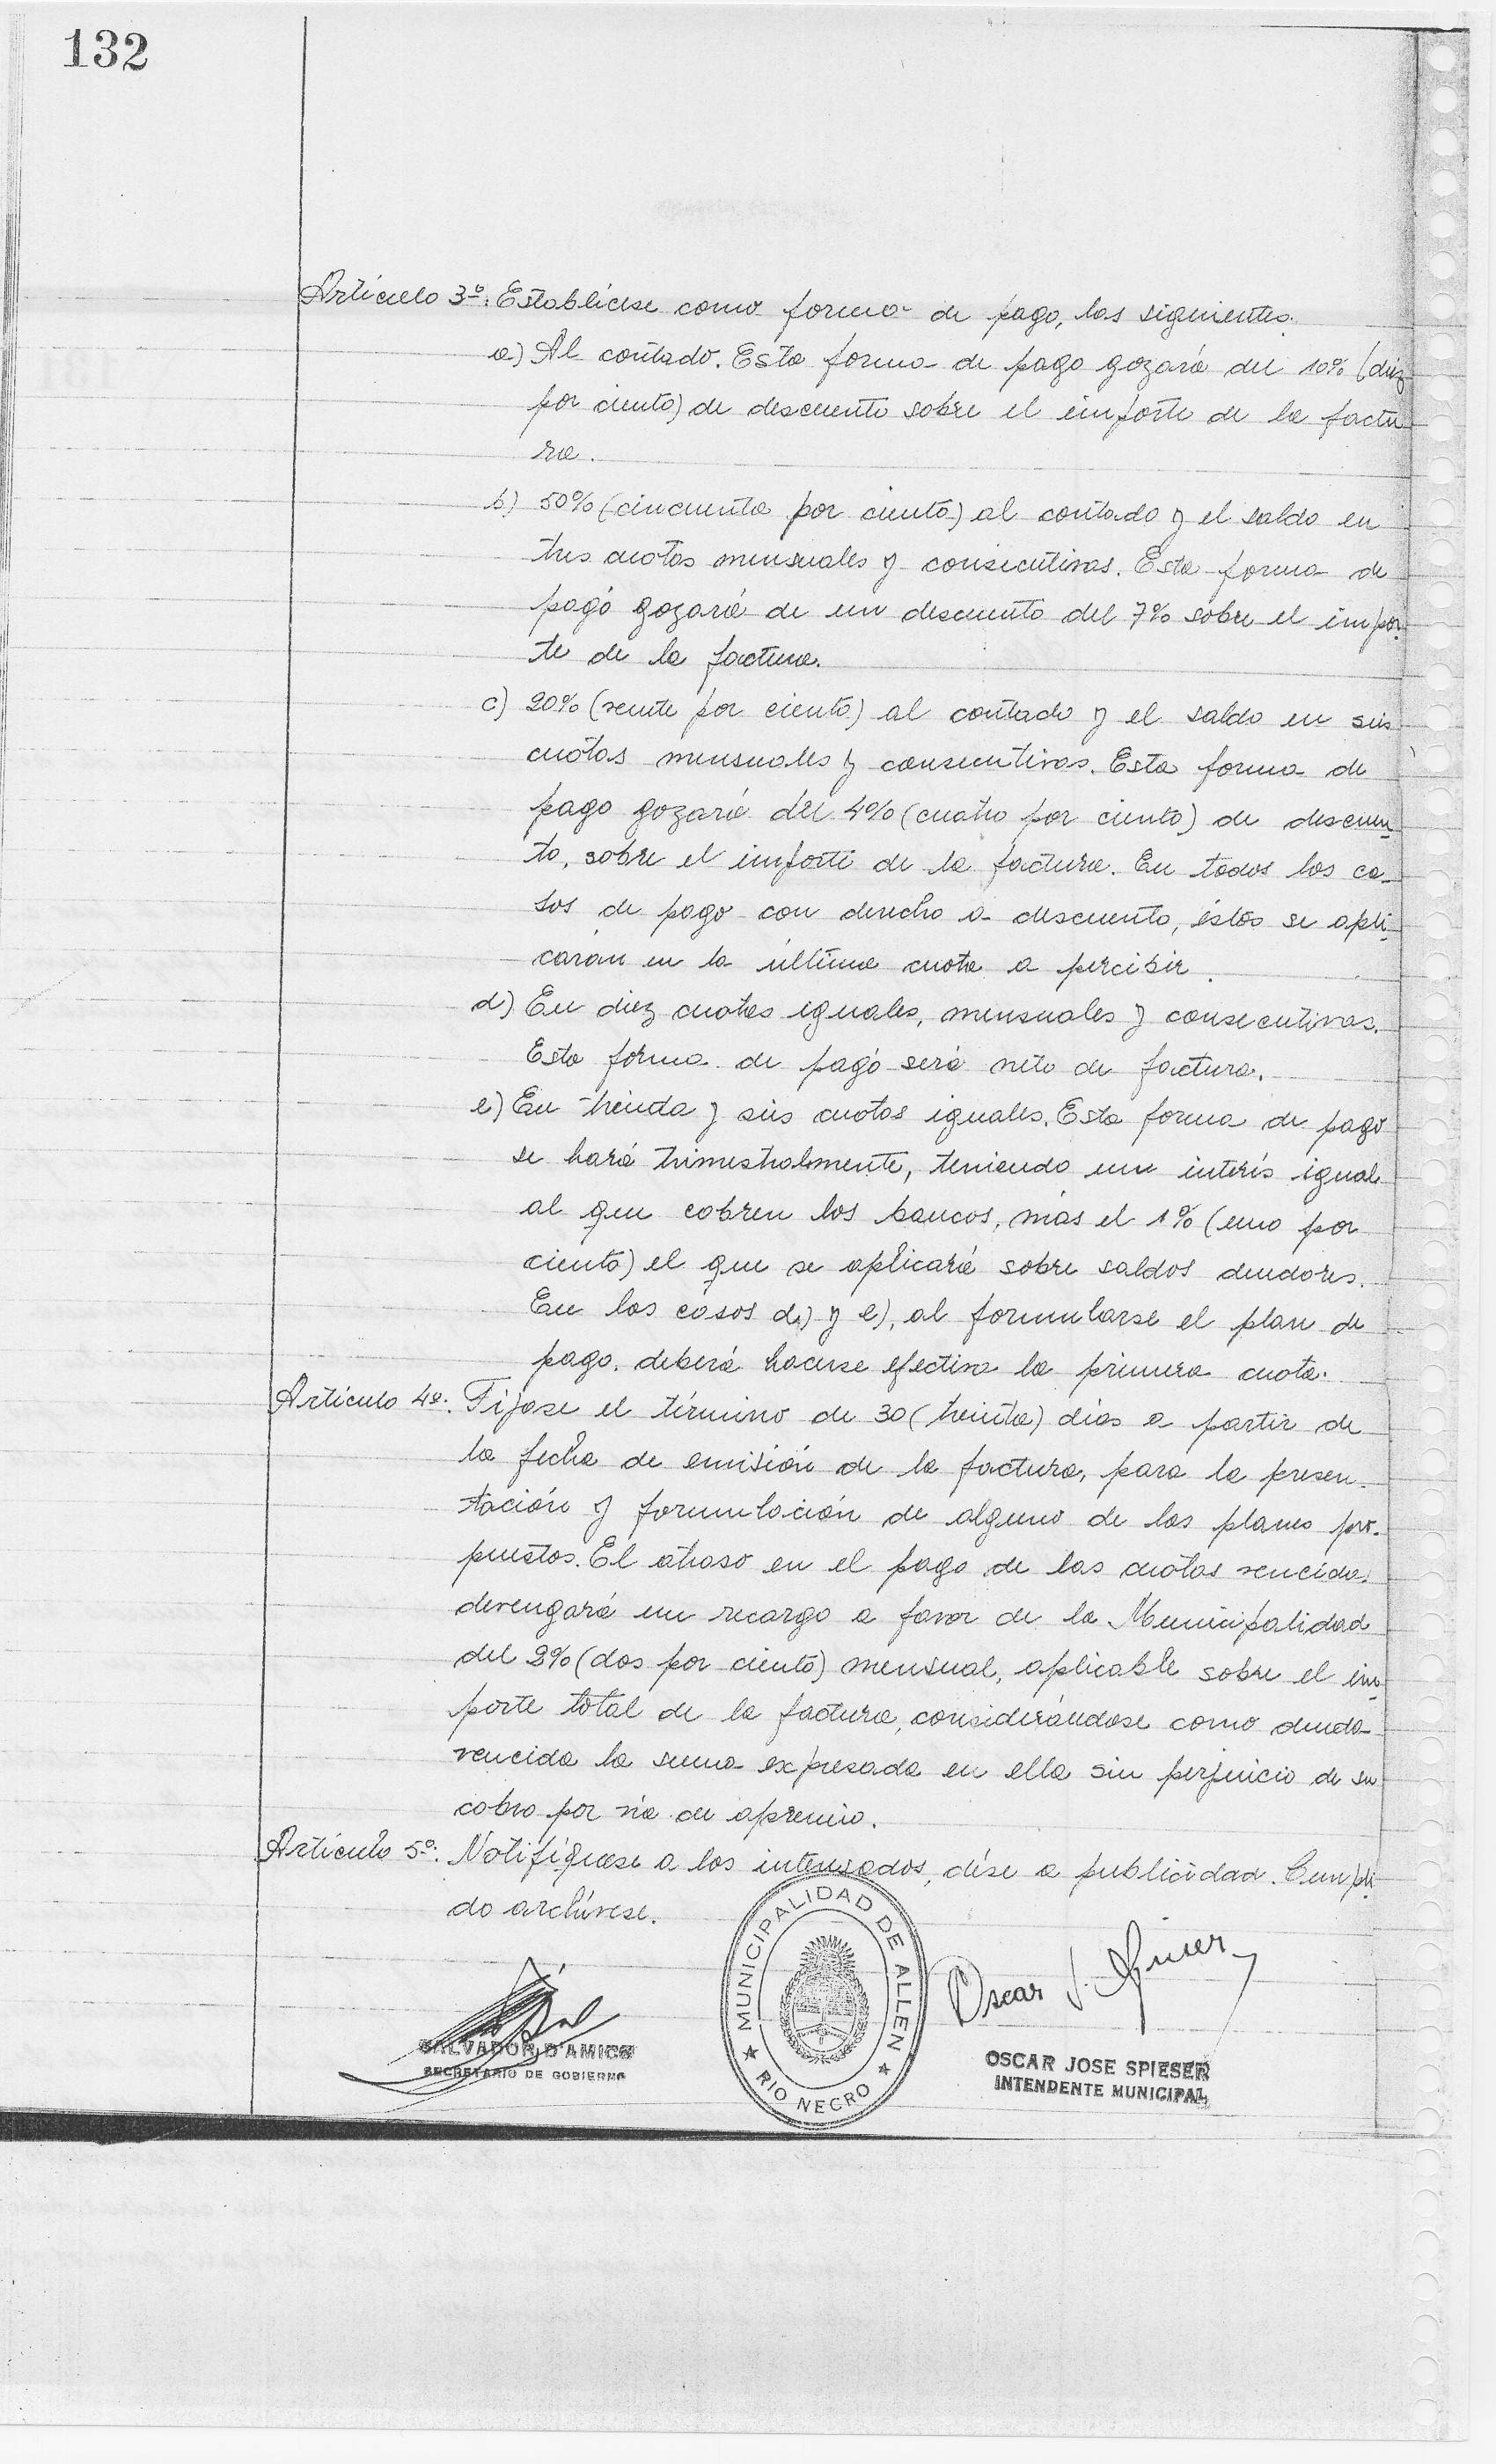 132
Artículo 3º: Establécese como forma de pago, las siguientes.
a) Al contado. Esta forma de pago gozará del 10% (diez
por ciento) de descuento sobre el importe de la factu
ra.
b) 50% (cincuenta por ciento) al contado y el saldo en
tres cuotas mensuales y consecutivas. Esta forma de
pago gozará de un descuento del 7% sobre el impor
te de la factura.
c) 20% (veinte por ciento) al contado y el saldo en seis
cuotas mensuales y consecutivas. Esta forma de
pago gozará del 4% (cuatro por ciento) de descuen
to, sobre el importe de la factura. En todos los ca-
sos de pago con derecho a descuento, éstos se apli-
carán en la última cuota a percibir.
d) En diez cuotas iguales, mensuales y consecutivas.
Esta forma de pago será neto de factura.
e) En treinta y seis cuotas iguales. Esta forma de pago
se hará trimestralmente, teniendo un interés igual
al que cobren los bancos, más el 1% (uno por
ciento) el que se aplicará sobre saldos deudores.
En los casos d) y e), al formularse el plan de
pago, deberá hacerse efectiva la primera cuota.
Artículo 4º: Fíjase el término de 30 (treinta) días a partir de
la fecha de emisión de la factura, para la presen-
tación y formulación de alguno de los planes pro-
puestos. El atraso en el pago de las cuotas vencidas
devengará un recargo a favor de la Municipalidad
del 2% (dos por ciento) mensual, aplicable sobre el im-
porte total de la factura, considerándose como deuda
vencida la suma expresada en ella sin perjuicio de su
cobro por vía de apremio.
Artículo 5º: Notifíquese a los interesados, dése a publicidad. Cumpli-
do archívese.
MUNICIPALIDAD DE ALLEN
RIO NEGRO
Oscar J. Spieser
SALVADOR D'AMICO
SECRETARIO DE GOBIERNO
OSCAR JOSE SPIESER
INTENDENTE MUNICIPAL